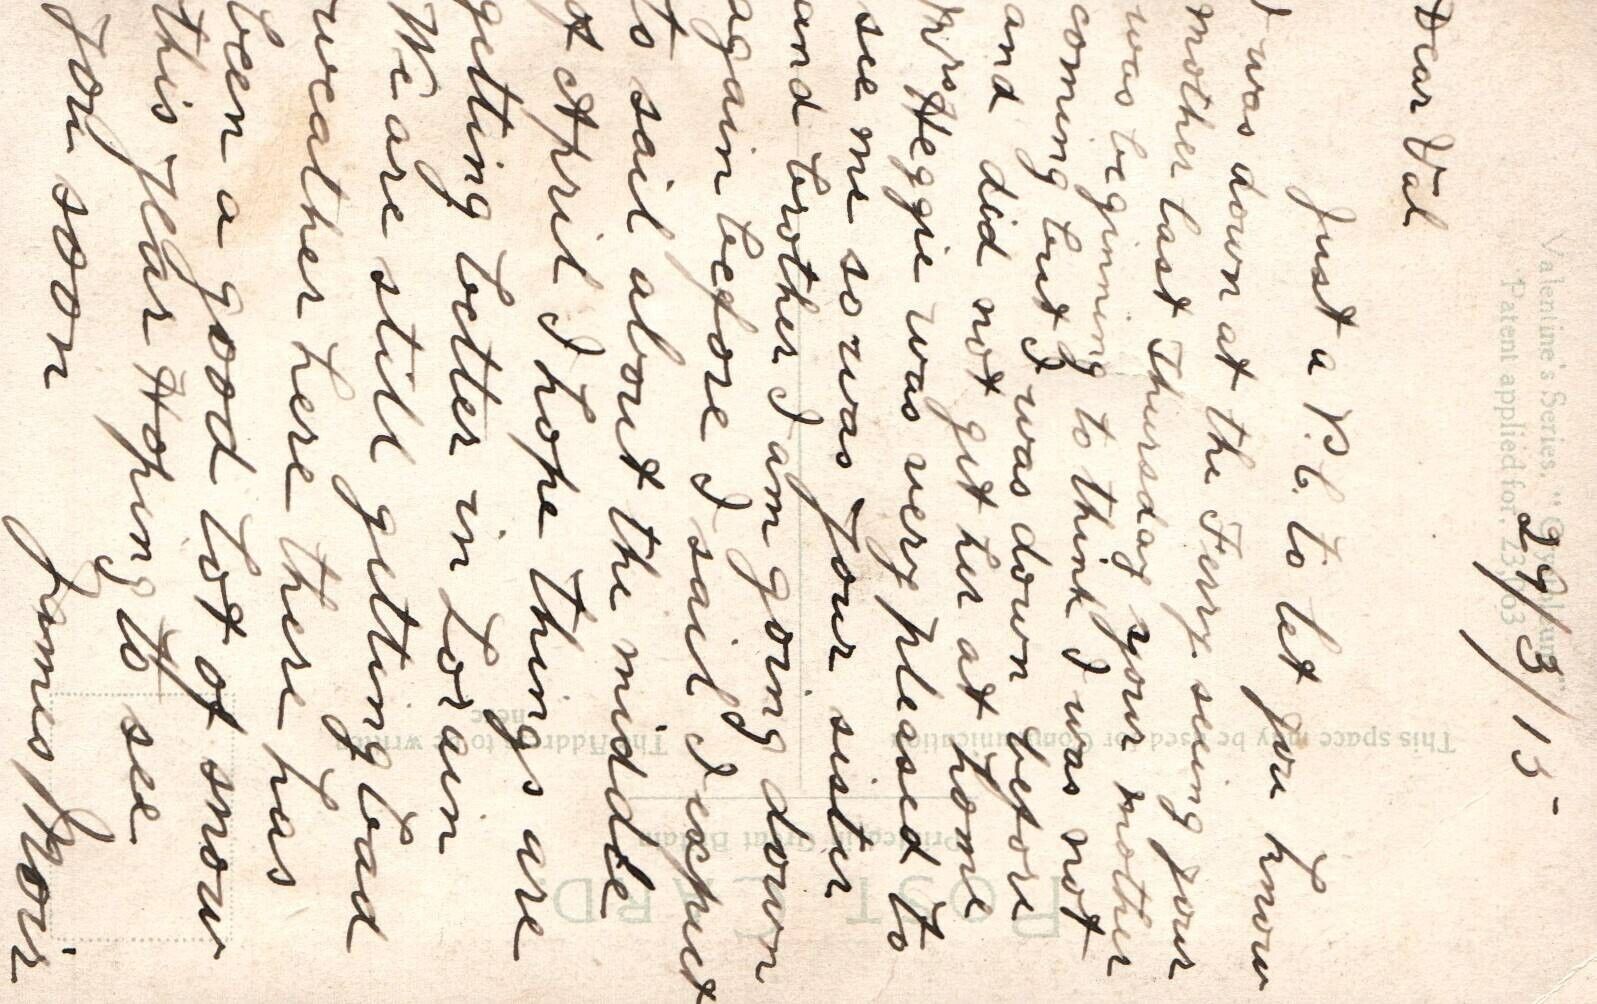 29/3/15-
Dear Val
Just a P.C. to let you know
I was down at the Ferry. seeing your
mother last Thursday your mother
was beginning to think I was not
coming but I was down before
and did not get her at home
Mrs Heggie was very pleased to
see me so was your sister
and brother I am going down
again before I sail I expect
to sail about the middle
of April I hope things are
getting better in Lorain
We are still getting bad
weather here there has
been a good lot of snow
this year Hoping to see
you soon
James Moir
Valentine's Series.
Patent applied for.
This space may be used for Communication
The Address to be written
here
Printed in Great Britain
POST CARD